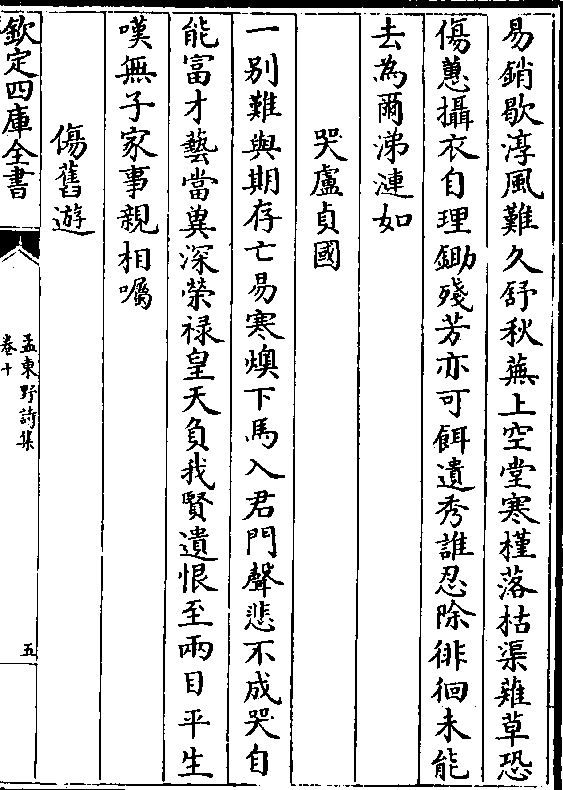 易銷歇淳風難久舒秋蕪上空堂寒槿落枯渠薙草恐
傷蕙攝衣自理鋤殘芳亦可餌遺秀誰忍除徘徊未能
去為爾涕漣如
哭盧貞國
一别難與期存亡易寒燠下馬入君門聲悲不成哭自
能富才藝當冀深榮禄皇天負我賢遺恨至兩目平生
嘆無子家事親相囑
傷舊遊
欽定四庫全書
孟東野詩集
卷十
五